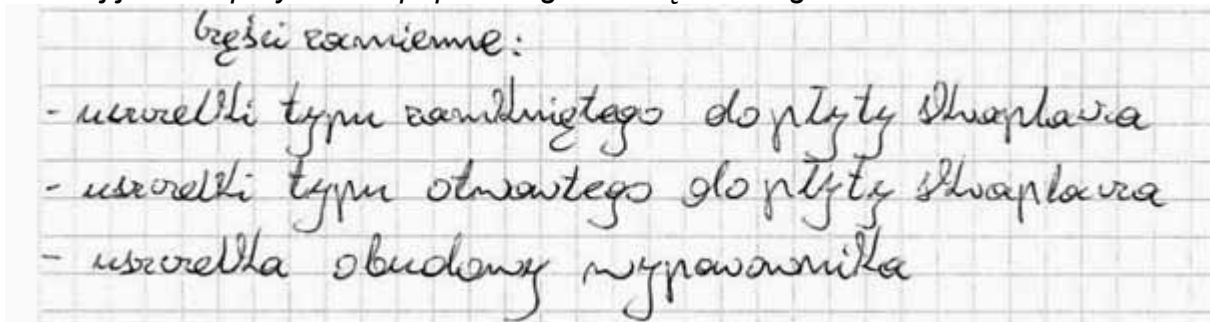 Części zamienne:
- uszczelki typu zamkniętego do płyty skraplacza
- uszczelki typu otwartego do płyty skraplacza
- uszczelka obudowy wyparownika